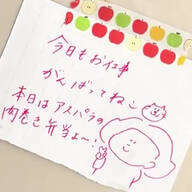 今日もお仕事
がんばってねこ
本日はアスパラの
肉巻き弁当よ〜!